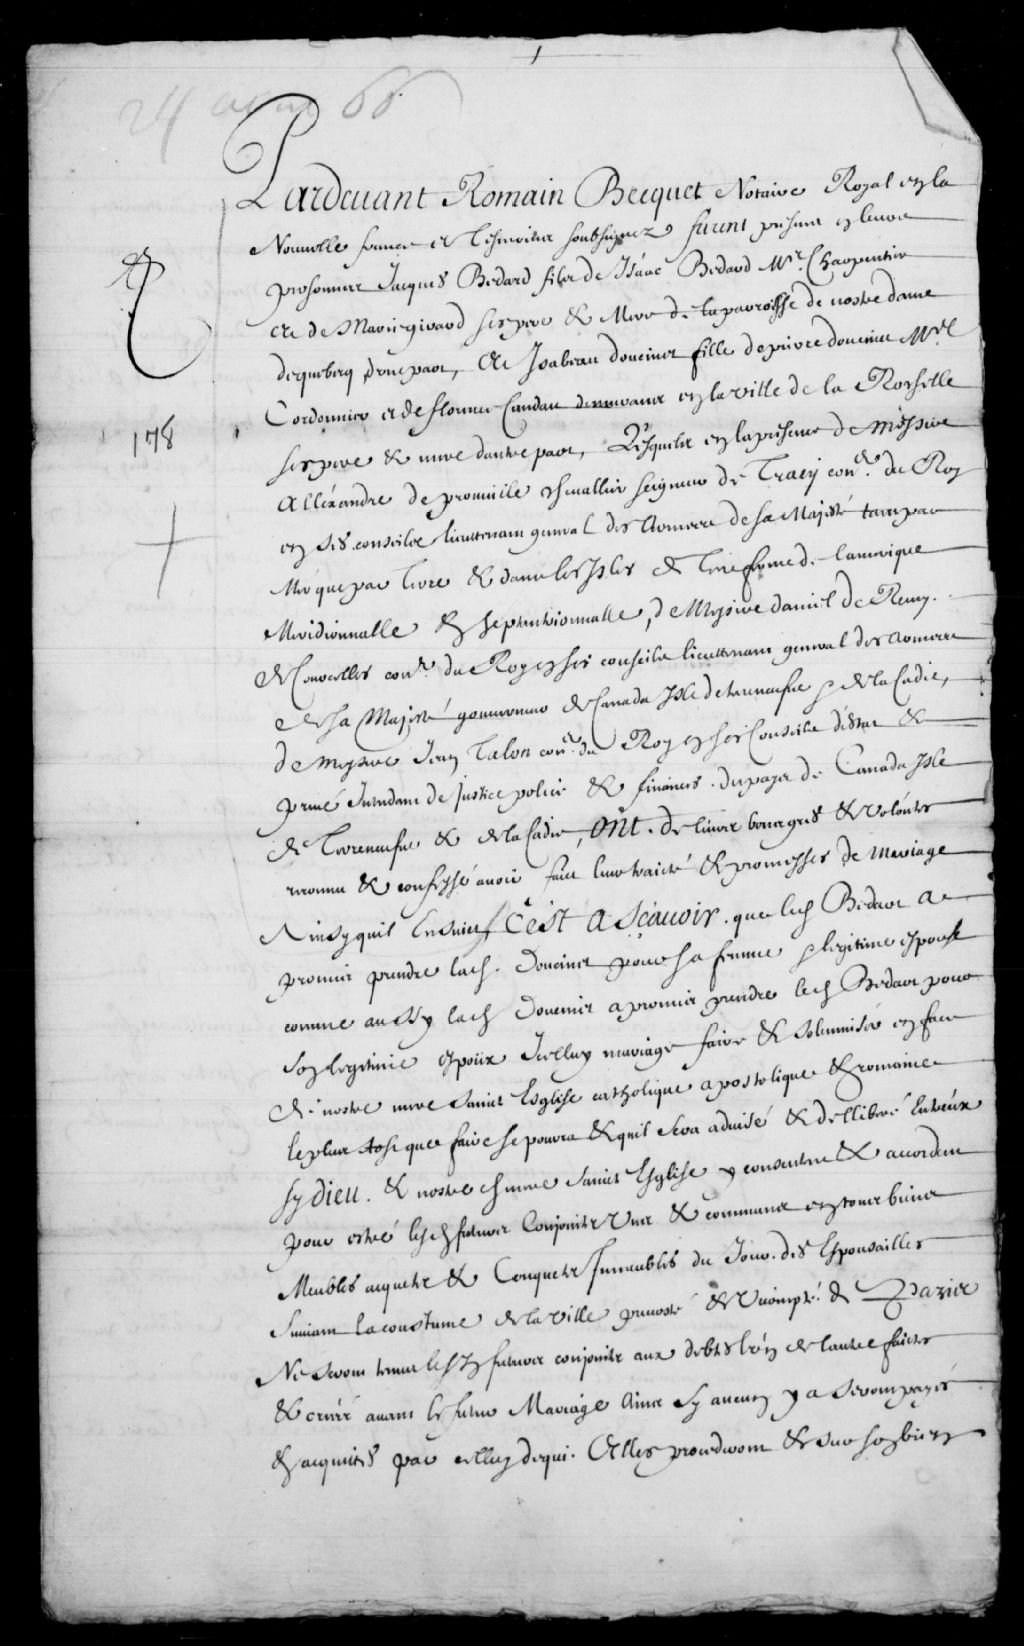 24 avril 66
Pardeuant Romain Becquet Notaire Royal en la
Nouuelle france et tesmoins soubsignez furent presens en leurs
personnes Jacques Bedard fils de Isaac Bedard Mre. Charpentier
et de Marie girard ses pere & Mere de la parroisse de nostre dame
de quebecq dune part, Et Isabeau doucinet fille de pierre doucinet Mre
Cordonnier et de florence Cantau demeurant en la ville de la Rochelle
178
ses pere & mere dautre part, Lesquels en la presence de Messire
Alléxandre de prouuille cheuallier seigneur de Tracy coner. du Roy
en ses conseils lieuttenant general des Armees de sa Majesté tant par
Mer que par terre & dans les Isles & terre ferme de lamerique
Meridionnalle & septentrionnalle, de Messire daniel de Remy
de Courcelles coner. du Roy en ses conseils lieuttenant general des Armees
de sa Majesté gouuerneur de Canada Isle de terreneufue & de la Cadie,
de Messire Jean Talon coner. du Roy en ses Conseils d'estat &
priué Intendant de Justice police & finances du pays de Canada Isle
de Terreneufue & de la Cadie, ont de leurs bons gres & volontes
reconnu & confessé auoir faict leur traicté & promesses de Mariage
Ainsy quil Ensuict, C'est Asçauoir que led Bedart a
promis prendre lad. Doucinet pour sa femme & legitime espouse
comme aussy lad Doucinet a promis prendre led Bedart pour
son legitime espoux Icelluy mariage faire & solemnisér en face
de nostre mere saincte Esglise catholique apostolique & romaine
le plus tost que faire se pourra & quil sera aduisé & dellibere Entreux
sy dieu & nostred mere saincte Esglise y consentent & accordent
pour estre lesd futurs Conjoincts Vns & communs en tous biens
Meubles acquets & Conquets Immeubles du Jour des Espousailles
suiuant la coustume de la ville preuosté & Vicomté de Paris
Ne seront tenus lesd futurs conjoincts aux debtes lun de lautre faictes
& créés auant led futur Mariage Ains sy aucun y a seront payés
& acquités par celluy de qui Elles procedront & sur son bien